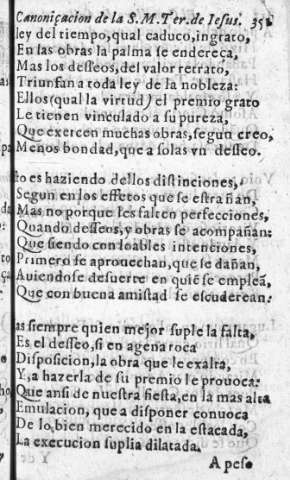 Canonizacion de la S. M. Ter. de Iesus. 35
ley del tiempo, qual caduco, ingrato,
En las obras la palma se endereca,
Mas los desseos, del valor retrato,
Triunfan a toda ley de la nobleza:
Ellos (qual la virtud) el premio grato
Le tienen vinculado a su pureza,
Que exercen muchas obras, segun creo,
Menos bondad, que a solas vn desseo.
to es haziendo dellos distinciones,
Segun en los effetos que se estrañan,
Mas no porque les falten perfecciones,
Quando desseos, y obras se acompañan:
Que siendo con loables intenciones,
Primero se aprouechan, que se dañan,
Auiendose desuerte en quiẽ se emplea,
Que con buena amistad se escuderean.
as siempre quien mejor suple la falta,
Es el desseo, si en agena roca
Disposicion, la obra que le exalta,
Y, a hazerla de su premio le prouoca:
Que ansi de nuestra fiesta, en la mas alta
Emulacion, que a disponer conuoca
De lo bien merecido en la estacada,
La execucion suplia dilatada.
A peso